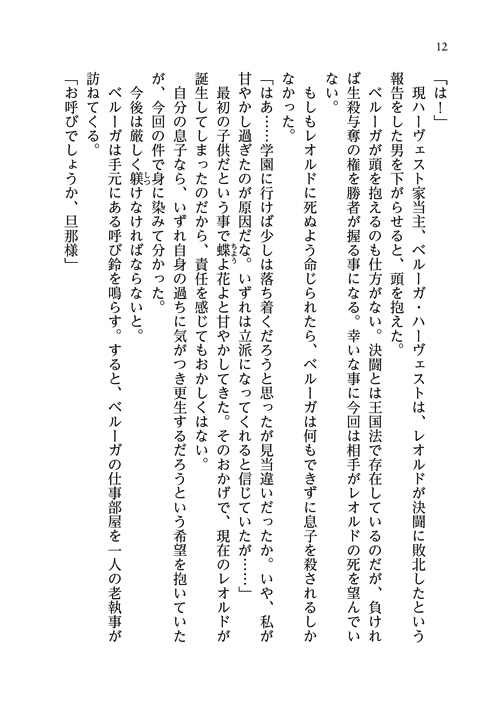 12
「は！」
　現ハーヴェスト家当主、ベルーガ・ハーヴェストは、レオルドが決闘に敗北したという
報告をした男を下がらせると、頭を抱えた。
　ベルーガが頭を抱えるのも仕方がない。決闘とは王国法で存在しているのだが、負けれ
ば生殺与奪の権を勝者が握る事になる。幸いな事に今回は相手がレオルドの死を望んでい
ない。
　もしもレオルドに死ぬよう命じられたら、ベルーガは何もできずに息子を殺されるしか
なかった。
「はあ……学園に行けば少しは落ち着くだろうと思ったが見当違いだったか。いや、私が
甘やかし過ぎたのが原因だな。いずれは立派になってくれると信じていたが……」
　最初の子供だという事で蝶よ花よと甘やかしてきた。そのおかげで、現在のレオルドが
誕生してしまったのだから、責任を感じてもおかしくはない。
　自分の息子なら、いずれ自身の過ちに気がつき更生するだろうという希望を抱いていた
が、今回の件で身に染みて分かった。
　今後は厳しく躾けなければならないと。
　ベルーガは手元にある呼び鈴を鳴らす。すると、ベルーガの仕事部屋を一人の老執事が
訪ねてくる。
「お呼びでしょうか、旦那様」